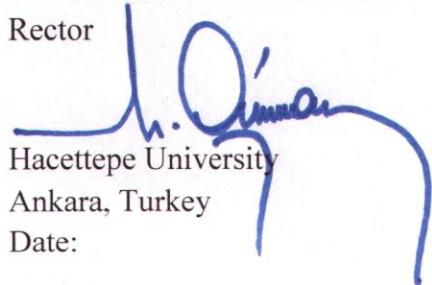 Rector
Hacettepe University
Ankara, Turkey
Date: